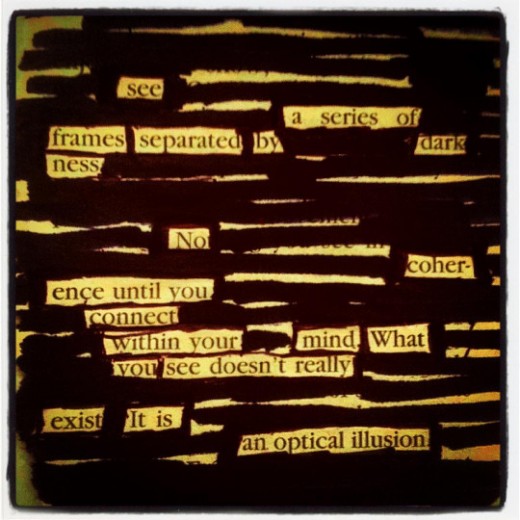 see
a series of
frames separated by dark
ness
No
you see in
coher-
ence until you
connect
within your mind What
you see doesn't really
exist It is
an optical illusion